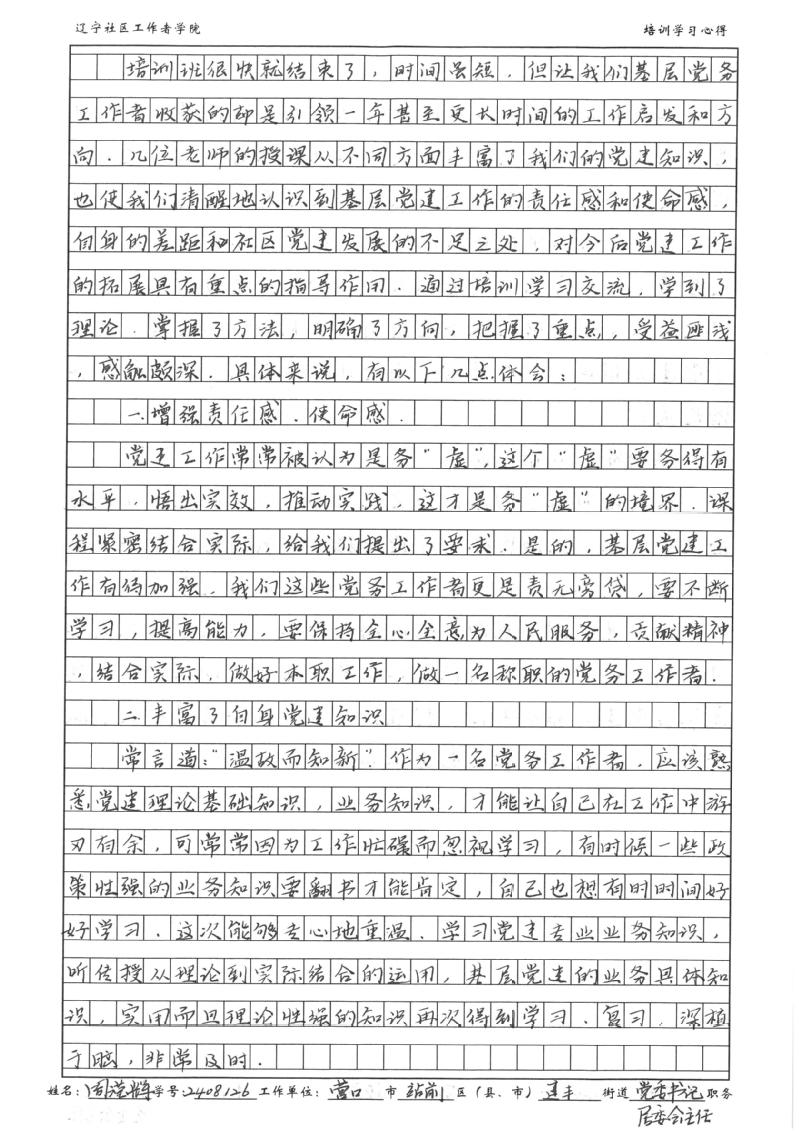 辽宁社区工作者学院 培训学习心得
培训班很快就结束了，时间虽短，但让我们基层党务
工作者收获的却是引领一年甚至更长时间的工作启发和方
向．几位老师的授课从不同方面丰富了我们的党建知识，
也使我们清醒地认识到基层党建工作的责任感和使命感，
自身的差距和社区党建发展的不足之处，对今后党建工作
的拓展具有重点的指导作用．通过培训学习交流，学到了
理论．掌握了方法，明确了方向，把握了重点，受益匪浅
，感触颇深．具体来说，有以下几点体会：
一．增强责任感．使命感．
党建工作常常被认为是务“虚”，这个“虚”要务得有
水平，悟出实效，推动实践，这才是务“虚”的境界．课
程紧密结合实际，给我们提出了要求．是的，基层党建工
作有待加强，我们这些党务工作者更是责无旁贷，要不断
学习，提高能力，要保持全心全意为人民服务，贡献精神
，结合实际，做好本职工作，做一名称职的党务工作者．
二．丰富了自身党建知识
常言道：“温故而知新”．作为一名党务工作者，应该熟
悉党建理论基础知识，业务知识，才能让自己在工作中游
刃有余，可常常因为工作忙碌而忽视学习，有时候一些政
策性强的业务知识要翻书才能肯定，自己也想有时时间好
好学习．这次能够专心地重温．学习党建专业业务知识，
听传授从理论到实际结合的运用，基层党建的业务具体知
识，实用而且理论性强的知识再次得到学习．复习，深植
于脑，非常及时．
姓名：周 学号：2408126 工作单位：营口 市 站前 区（县、市）建丰 街道 党委书记 职务
居委会主任